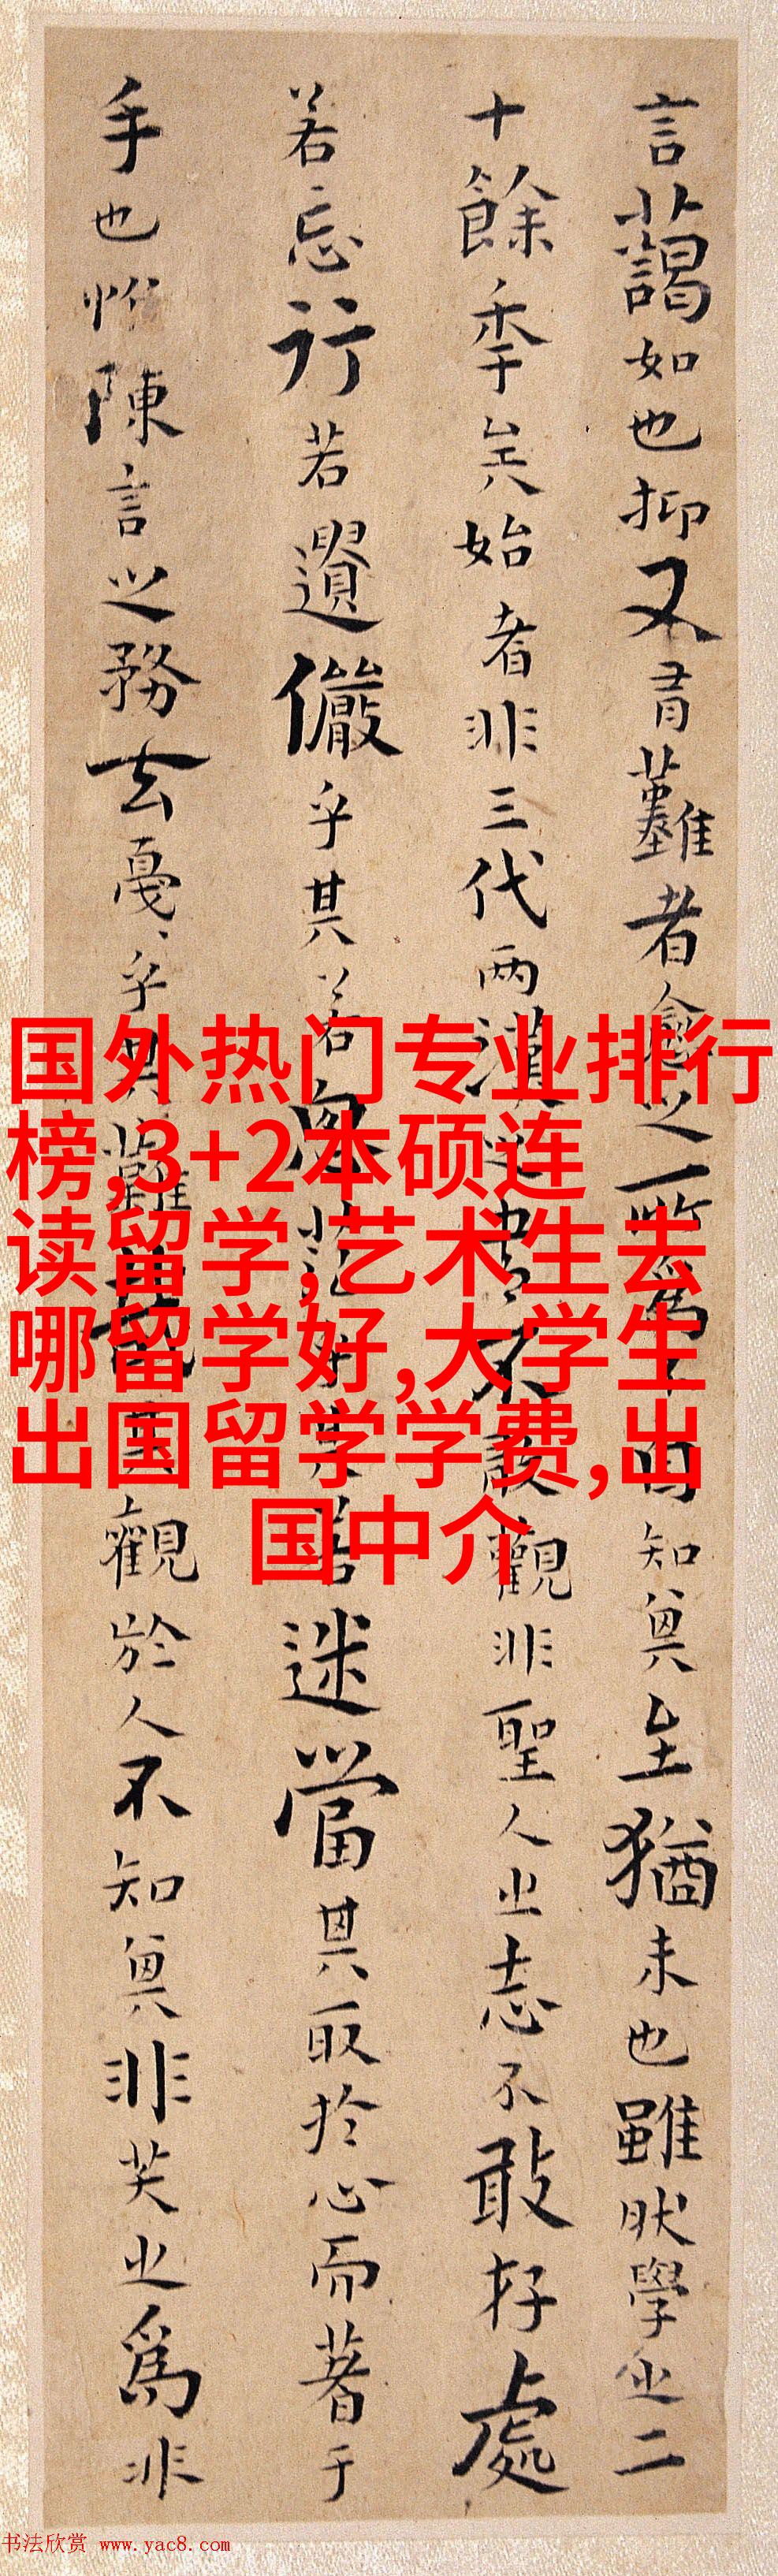 言藹如也抑又有難者愈之所爲不自知其至猶未也雖然學之二
十餘年矣始者非三代两漢之書不敢觀非聖人之志不敢存處
若忘行若遺儼乎其若思茫乎其若迷當其取於心而著于
手也惟陳言之務去戛〻乎其難哉其觀於人不知其非笑之爲非
国外热门专业排行
榜,3+2本硕连
读留学,艺术生去
哪留学好,大学生
出国留学学费,出
国中介
书法欣赏 www.yac8.com